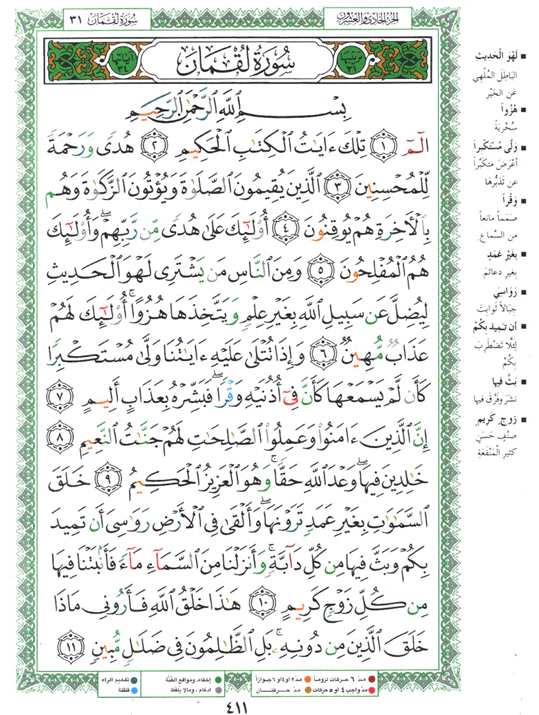 سُورَةُ لُقْمَان ٣١
الجزء الحادي والعشرون
سُورَةُ لُقْمَانَ
بِسْمِ اللَّهِ الرَّحْمَٰنِ الرَّحِيمِ
الٓمٓ ١ تِلْكَ ءَايَٰتُ الْكِتَٰبِ الْحَكِيمِ ٢ هُدًى وَرَحْمَةً
لِّلْمُحْسِنِينَ ٣ الَّذِينَ يُقِيمُونَ الصَّلَوٰةَ وَيُؤْتُونَ الزَّكَوٰةَ وَهُم
بِالْءَاخِرَةِ هُمْ يُوقِنُونَ ٤ أُو۟لَٰٓئِكَ عَلَىٰ هُدًى مِّن رَّبِّهِمْ ۖ وَأُو۟لَٰٓئِكَ
هُمُ الْمُفْلِحُونَ ٥ وَمِنَ النَّاسِ مَن يَشْتَرِى لَهْوَ الْحَدِيثِ
لِيُضِلَّ عَن سَبِيلِ اللَّهِ بِغَيْرِ عِلْمٍ وَيَتَّخِذَهَا هُزُوًا ۚ أُو۟لَٰٓئِكَ لَهُمْ
عَذَابٌ مُّهِينٌ ٦ وَإِذَا تُتْلَىٰ عَلَيْهِ ءَايَٰتُنَا وَلَّىٰ مُسْتَكْبِرًا
كَأَن لَّمْ يَسْمَعْهَا كَأَنَّ فِىٓ أُذُنَيْهِ وَقْرًا ۖ فَبَشِّرْهُ بِعَذَابٍ أَلِيمٍ ٧
إِنَّ الَّذِينَ ءَامَنُوا۟ وَعَمِلُوا۟ الصَّٰلِحَٰتِ لَهُمْ جَنَّٰتُ النَّعِيمِ ٨
خَٰلِدِينَ فِيهَا ۖ وَعْدَ اللَّهِ حَقًّا ۚ وَهُوَ الْعَزِيزُ الْحَكِيمُ ٩ خَلَقَ
السَّمَٰوَٰتِ بِغَيْرِ عَمَدٍ تَرَوْنَهَا ۖ وَأَلْقَىٰ فِى الْأَرْضِ رَوَٰسِىَ أَن تَمِيدَ
بِكُمْ وَبَثَّ فِيهَا مِن كُلِّ دَآبَّةٍ ۚ وَأَنزَلْنَا مِنَ السَّمَآءِ مَآءً فَأَنۢبَتْنَا فِيهَا
مِن كُلِّ زَوْجٍ كَرِيمٍ ١٠ هَٰذَا خَلْقُ اللَّهِ فَأَرُونِى مَاذَا
خَلَقَ الَّذِينَ مِن دُونِهِۦ ۚ بَلِ الظَّٰلِمُونَ فِى ضَلَٰلٍ مُّبِينٍ ١١
لَهْوَ الْحَدِيثِ
الْبَاطِلَ الْمُلْهِي
عَنِ الْخَيْرِ
هُزُواً
سُخْرِيَةً
وَلَّى مُسْتَكْبِراً
أَعْرَضَ مُتَكَبِّراً
عَن تَدَبُّرِهَا
وَقْراً
صَمَماً مَانِعاً
مِنَ السَّمَاعِ
بِغَيْرِ عَمَدٍ
بِغَيْرِ دَعَائِمَ
رَوَاسِيَ
جِبَالاً ثَوَابِتَ
أَن تَمِيدَ بِكُمْ
لِئَلَّا تَضْطَرِبَ
بِكُمْ
بَثَّ فِيهَا
نَشَرَ وَفَرَّقَ فِيهَا
زَوْجٍ كَرِيمٍ
صِنْفٍ حَسَنٍ
كَثِيرِ الْمَنْفَعَةِ
مدّ ٦ حركات لزوماً مدّ ٢ أو ٤ أو ٦ جوازاً
مدّ واجب ٤ أو ٥ حركات مدّ حركتان
إخفاء، ومواقع الغُنَّة
إدغام، ومالا يُلفَظ
تفخيم الراء
قلقلة
٤١١